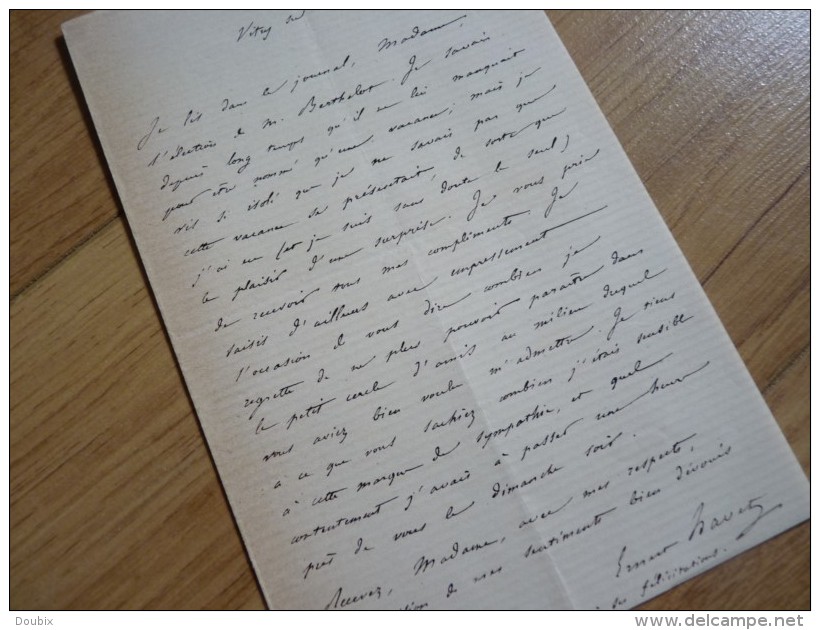 Vitry sur
Je lis dans le journal, Madame,
l'élection de M. Berthelot. Je savais
depuis long temps qu'il ne lui manquait
pour être nommé qu'une vacance; mais je
vis si isolé que je ne savais pas que
cette vacance se présentait, de sorte que
j'ai eu (et je suis sans doute le seul)
le plaisir d'une surprise. Je vous prie
de recevoir tous mes compliments. Je
saisis d'ailleurs avec empressement
l'occasion de vous dire combien je
regrette de ne plus pouvoir paraître dans
le petit cercle d'amis au milieu duquel
vous aviez bien voulu m'admettre. Je tiens
à ce que vous sachiez combien j'étais sensible
à cette marque de sympathie, et quel
contentement j'avais à passer une heure
près de vous le dimanche soir.
Recevez, Madame, avec mes respects,
de mes sentiments bien dévoués
Ernest Havet
félicitations.
Doubix
www.delcampe.net